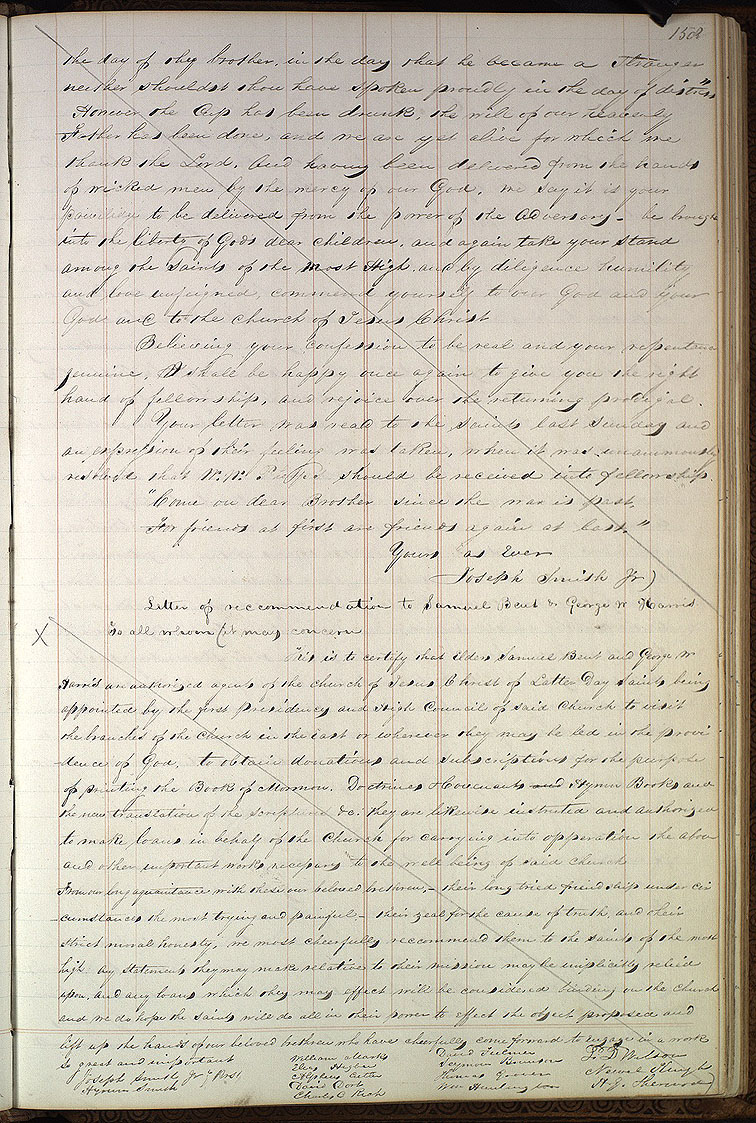 158
the day of thy brother, in the day that he became a stranger
neither shouldst thou have spoken proudly in the day of distress
However the Cup has been drunk, the will of our heavenly
Father has been done, and we are yet alive for which we
thank the Lord. And having been delivered from the hands
of wicked men by the mercy of our God, we say it is your
to be delivered from the power of the Adversary – be brought
into the liberty of Gods dear children, and again take your stand
among the saints of the Most High, and by diligence humility
and love unfeigned, commend yourself to our God and your
God and to the church of Jesus Christ
Believing your confession to be real and your repentance
genuine, I shall be happy once again to give you the right
hand of fellowship, and rejoice over the returning prodigal.
Your letter was read to the saints last Sunday and
an expression of their feeling was taken, when it was unanimously
resolved that W. W. Phelps should be received into fellowship.
"Come on dear Brother since the war is past,
For friends at first are friends again at last."
Yours as Ever
Joseph Smith Jr)
Letter of reccommendation to Samuel Bent & George W Harris
X
To all whom it may concern
This is to certify that Elders Samuel Bent and George W
Harris an authorized agents of the church of Jesus Christ of Latter Day saints being
appointed by the first Presidency and High Council of said Church to visit
the branches of the Church in the East or wherever they may be led in the provi
dence of God, to obtain donations and subscriptions for the purpose
of printing the Book of Mormon, Doctrines & Covenants and Hymn Books and
the new translation of the scriptures &c. they are likewise instructed and authorized
to make loans in behalf of the Church for carrying into opperation the above
and other important works, necessary to the well being of said church
From our long aquaintance with these our beloved brethren, – their long tried friendship under cir
-cumstances the most trying and painful – their zeal for the cause of truth, and their
strict moral honesty, we most cheerfully reccommend them to the saints of the most
high any statement they may make relative to their mission may be implicitly relied
upon, and any loans which they may effect will be considered binding on the church
and we do hope the saints will do all in their power to effect the object proposed and
lift up the hands of our beloved brethren who have cheerfully come forward to engage in a work
so great and important
Joseph Smith Jr Prs.
Hyrum Smith
William Marks
Elias Higbee
Alpheus Cutler
David Dort
Charles C Rich
David Fulmer
Seymour Brunson
Thomas Grover
Wm Huntington
L. D. Wilson
Newel Knight
H. G. Sherwood